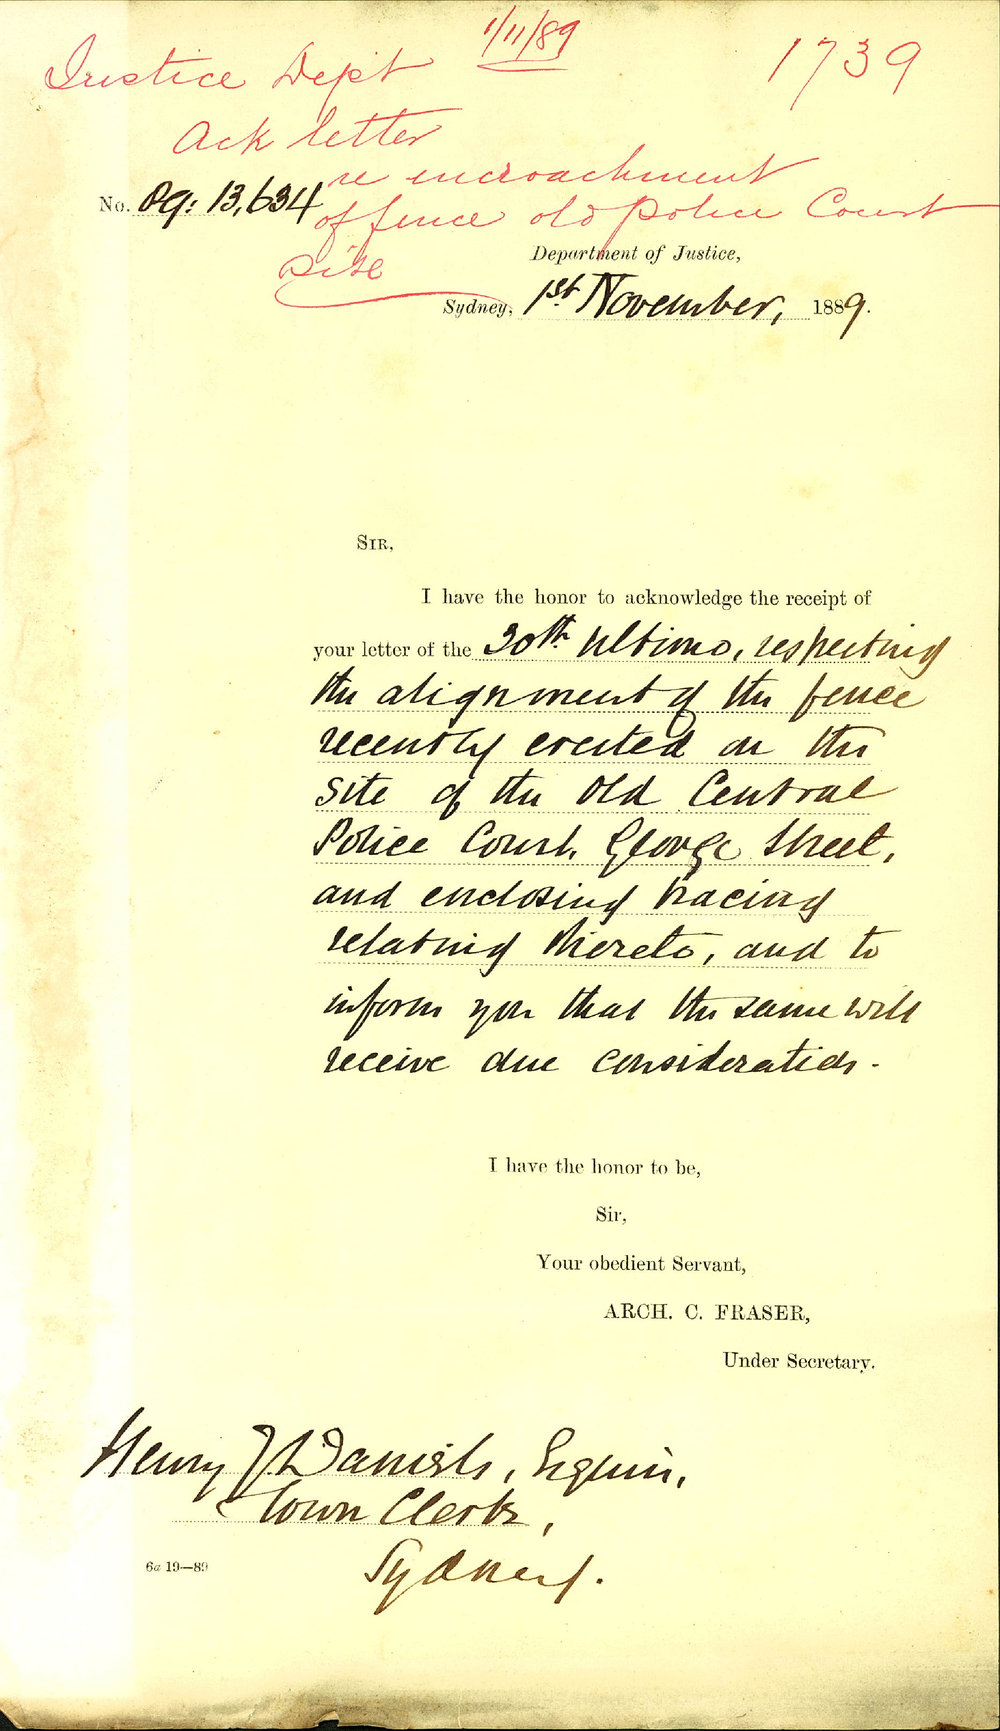 1/11/89
Justice Dept 1739
Ack letter
re encroachment
of fence old Police Court
site
No. 89: 13,634
Department of Justice,
Sydney, 1st November, 1889.
SIR,
I have the honor to acknowledge the receipt of
your letter of the 30th Ultimo, respecting
the alignment of the fence
recently erected on the
site of the Old Central
Police Court, George Street,
and enclosing tracing
relating thereto, and to
inform you that the same will
receive due consideration.
I have the honor to be,
Sir,
Your obedient Servant,
ARCH. C. FRASER,
Under Secretary.
Henry J Daniels, Esquire,
Town Clerk,
Sydney.
6a 19—89